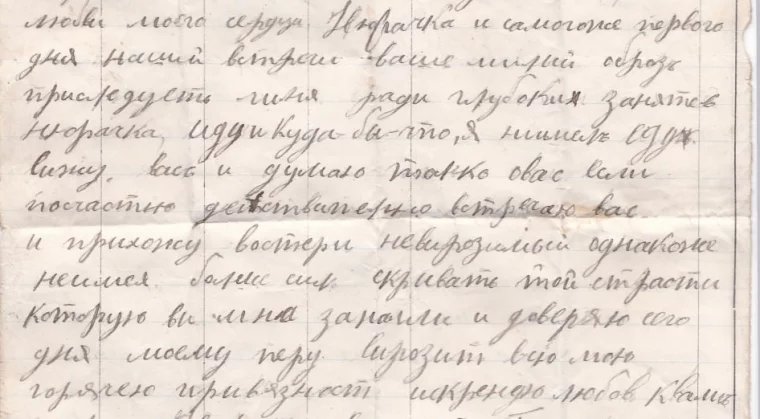 любви моего сердца Нюрачка и самогоже первого
дня нашай встречи ваше милий образь
приследуеть миня ради глубоких занятев
нюрачка, идди куда-бы-что, я
вижу. васъ и думаю толко овас если
посчастю действително встречаю вас
и прихожу востери невирозимый однакоже
неимея болше сил скривать той страсти
которую ви мна заножли и доверяю сего
дня моему перу вирозит всю мою
горячею привязност искренюю любов квамъ